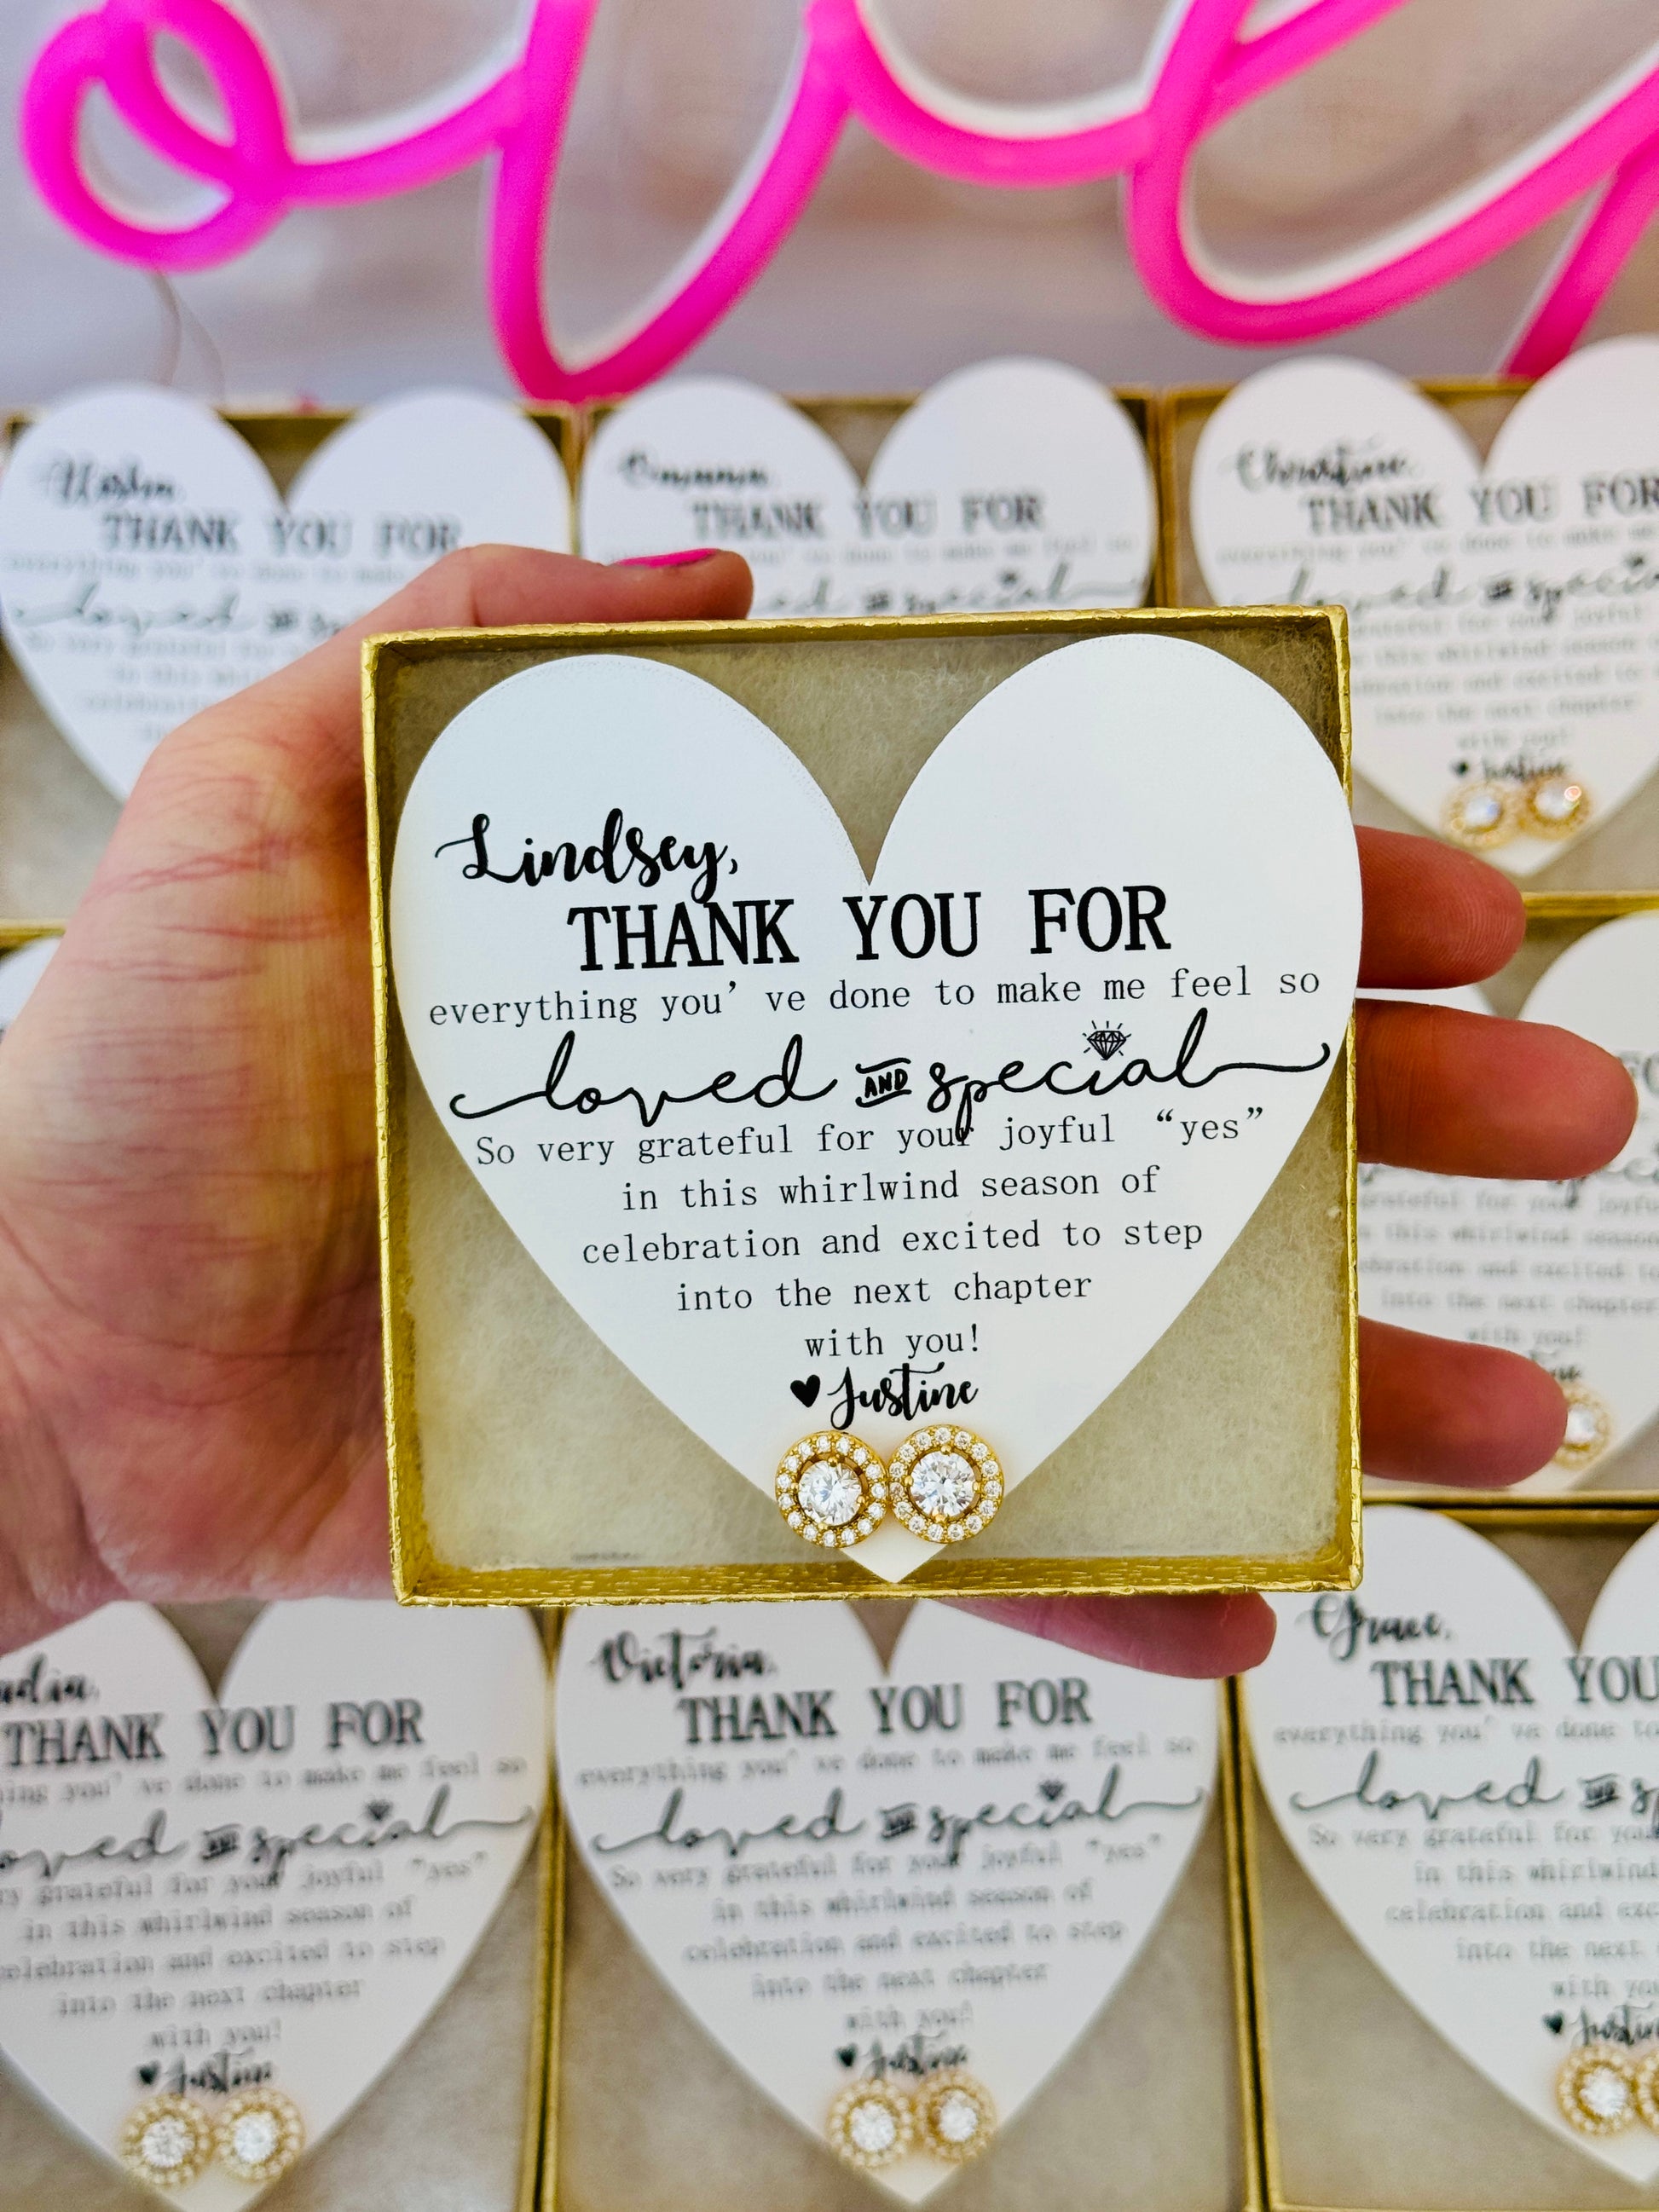 Christine,
THANK YOU FOR
THANK YOU FOR
THANK YOU FOR
everything you've done to make
loved
loved AND special
with you!
Justine
Lindsey,
THANK YOU FOR
everything you've done to make me feel so
loved AND special
So very grateful for your joyful “yes”
in this whirlwind season of
celebration and excited to step
into the next chapter
with you!
♥Justine
grateful for your joyful
this whirlwind season
into the next chapter
with you!
THANK YOU FOR
you've done to make me feel so
loved AND special
grateful for your joyful “yes”
in this whirlwind season of
celebration and excited to step
into the next chapter
with you!
♥Justine
Victoria,
THANK YOU FOR
everything you've done to make me feel so
loved AND special
So very grateful for your joyful “yes”
in this whirlwind season of
celebration and excited to step
into the next chapter
with you!
♥Justine
Grace,
THANK YOU
everything you've done to
loved AND
So very grateful for your
in this whirlwind
celebration and
into the next
with you
♥Justine